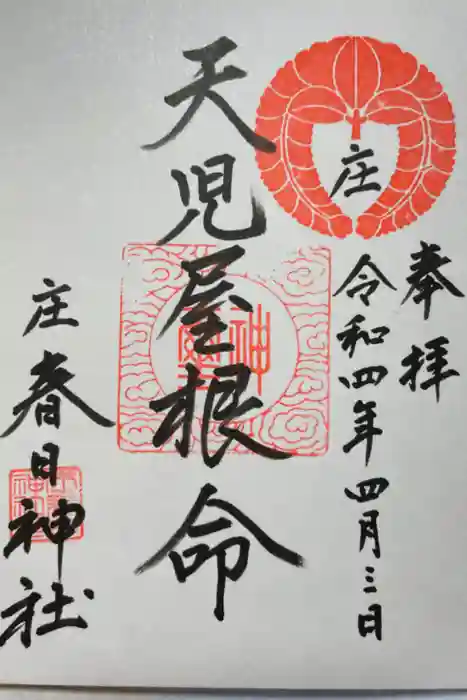 奉拝
庄
令和四年四月三日
天児屋根命
庄
春日神社